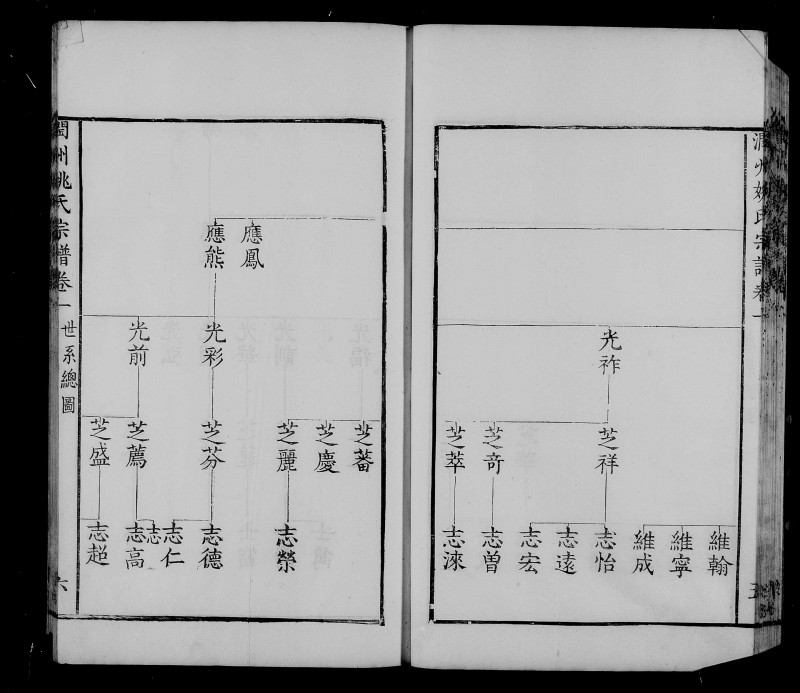 潤州姚氏宗譜卷一
五
光祚
芝祥
芝奇
芝萃
維翰
維寧
維成
志怡
志遠
志宏
志曾
志淶
應鳳
應熊
光彩
光前
芝蕃
芝慶
芝麗
芝芬
芝薦
芝盛
志榮
志德
志仁
志
志高
志超
閏州姚氏宗譜卷一
世系總圖
六